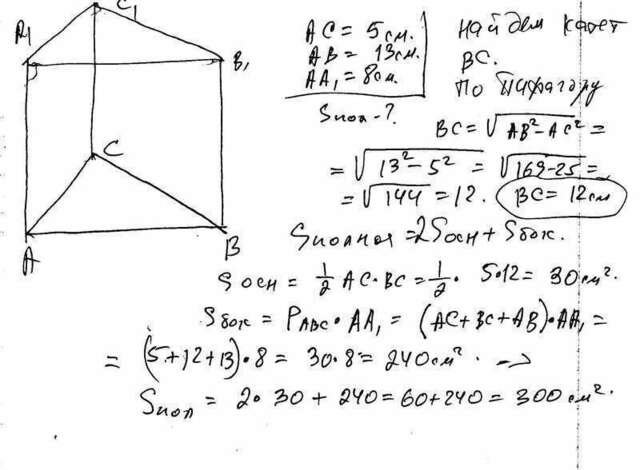 C₁
A₁
B₁
C
A
B
AC = 5 см.
AB = 13 см.
AA₁ = 8 см.
Sпол - ?
найдем катет
BC.
По Пифагору
BC = √AB² - AC² =
= √13² - 5² = √169-25 =
= √144 = 12. BC = 12 см
Sполная = 2Sосн + Sбок.
Sосн = 1/2 AC · BC = 1/2 · 5·12 = 30 см².
Sбок = PABC · AA₁ = (AC + BC + AB) · AA₁ =
= (5 + 12 + 13) · 8 = 30 · 8 = 240 см² . →
Sпол = 2 · 30 + 240 = 60 + 240 = 300 см².